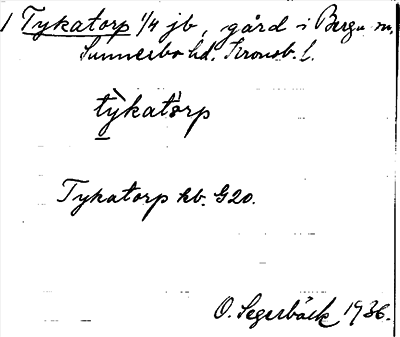 1 Tykatorp 1/4 jb, gård i Berga sn,
Sunnerbo hd. Kronob. l.
tỳkatòrp
Tykatorp kb. G20.
O. Segerbäck 1936.